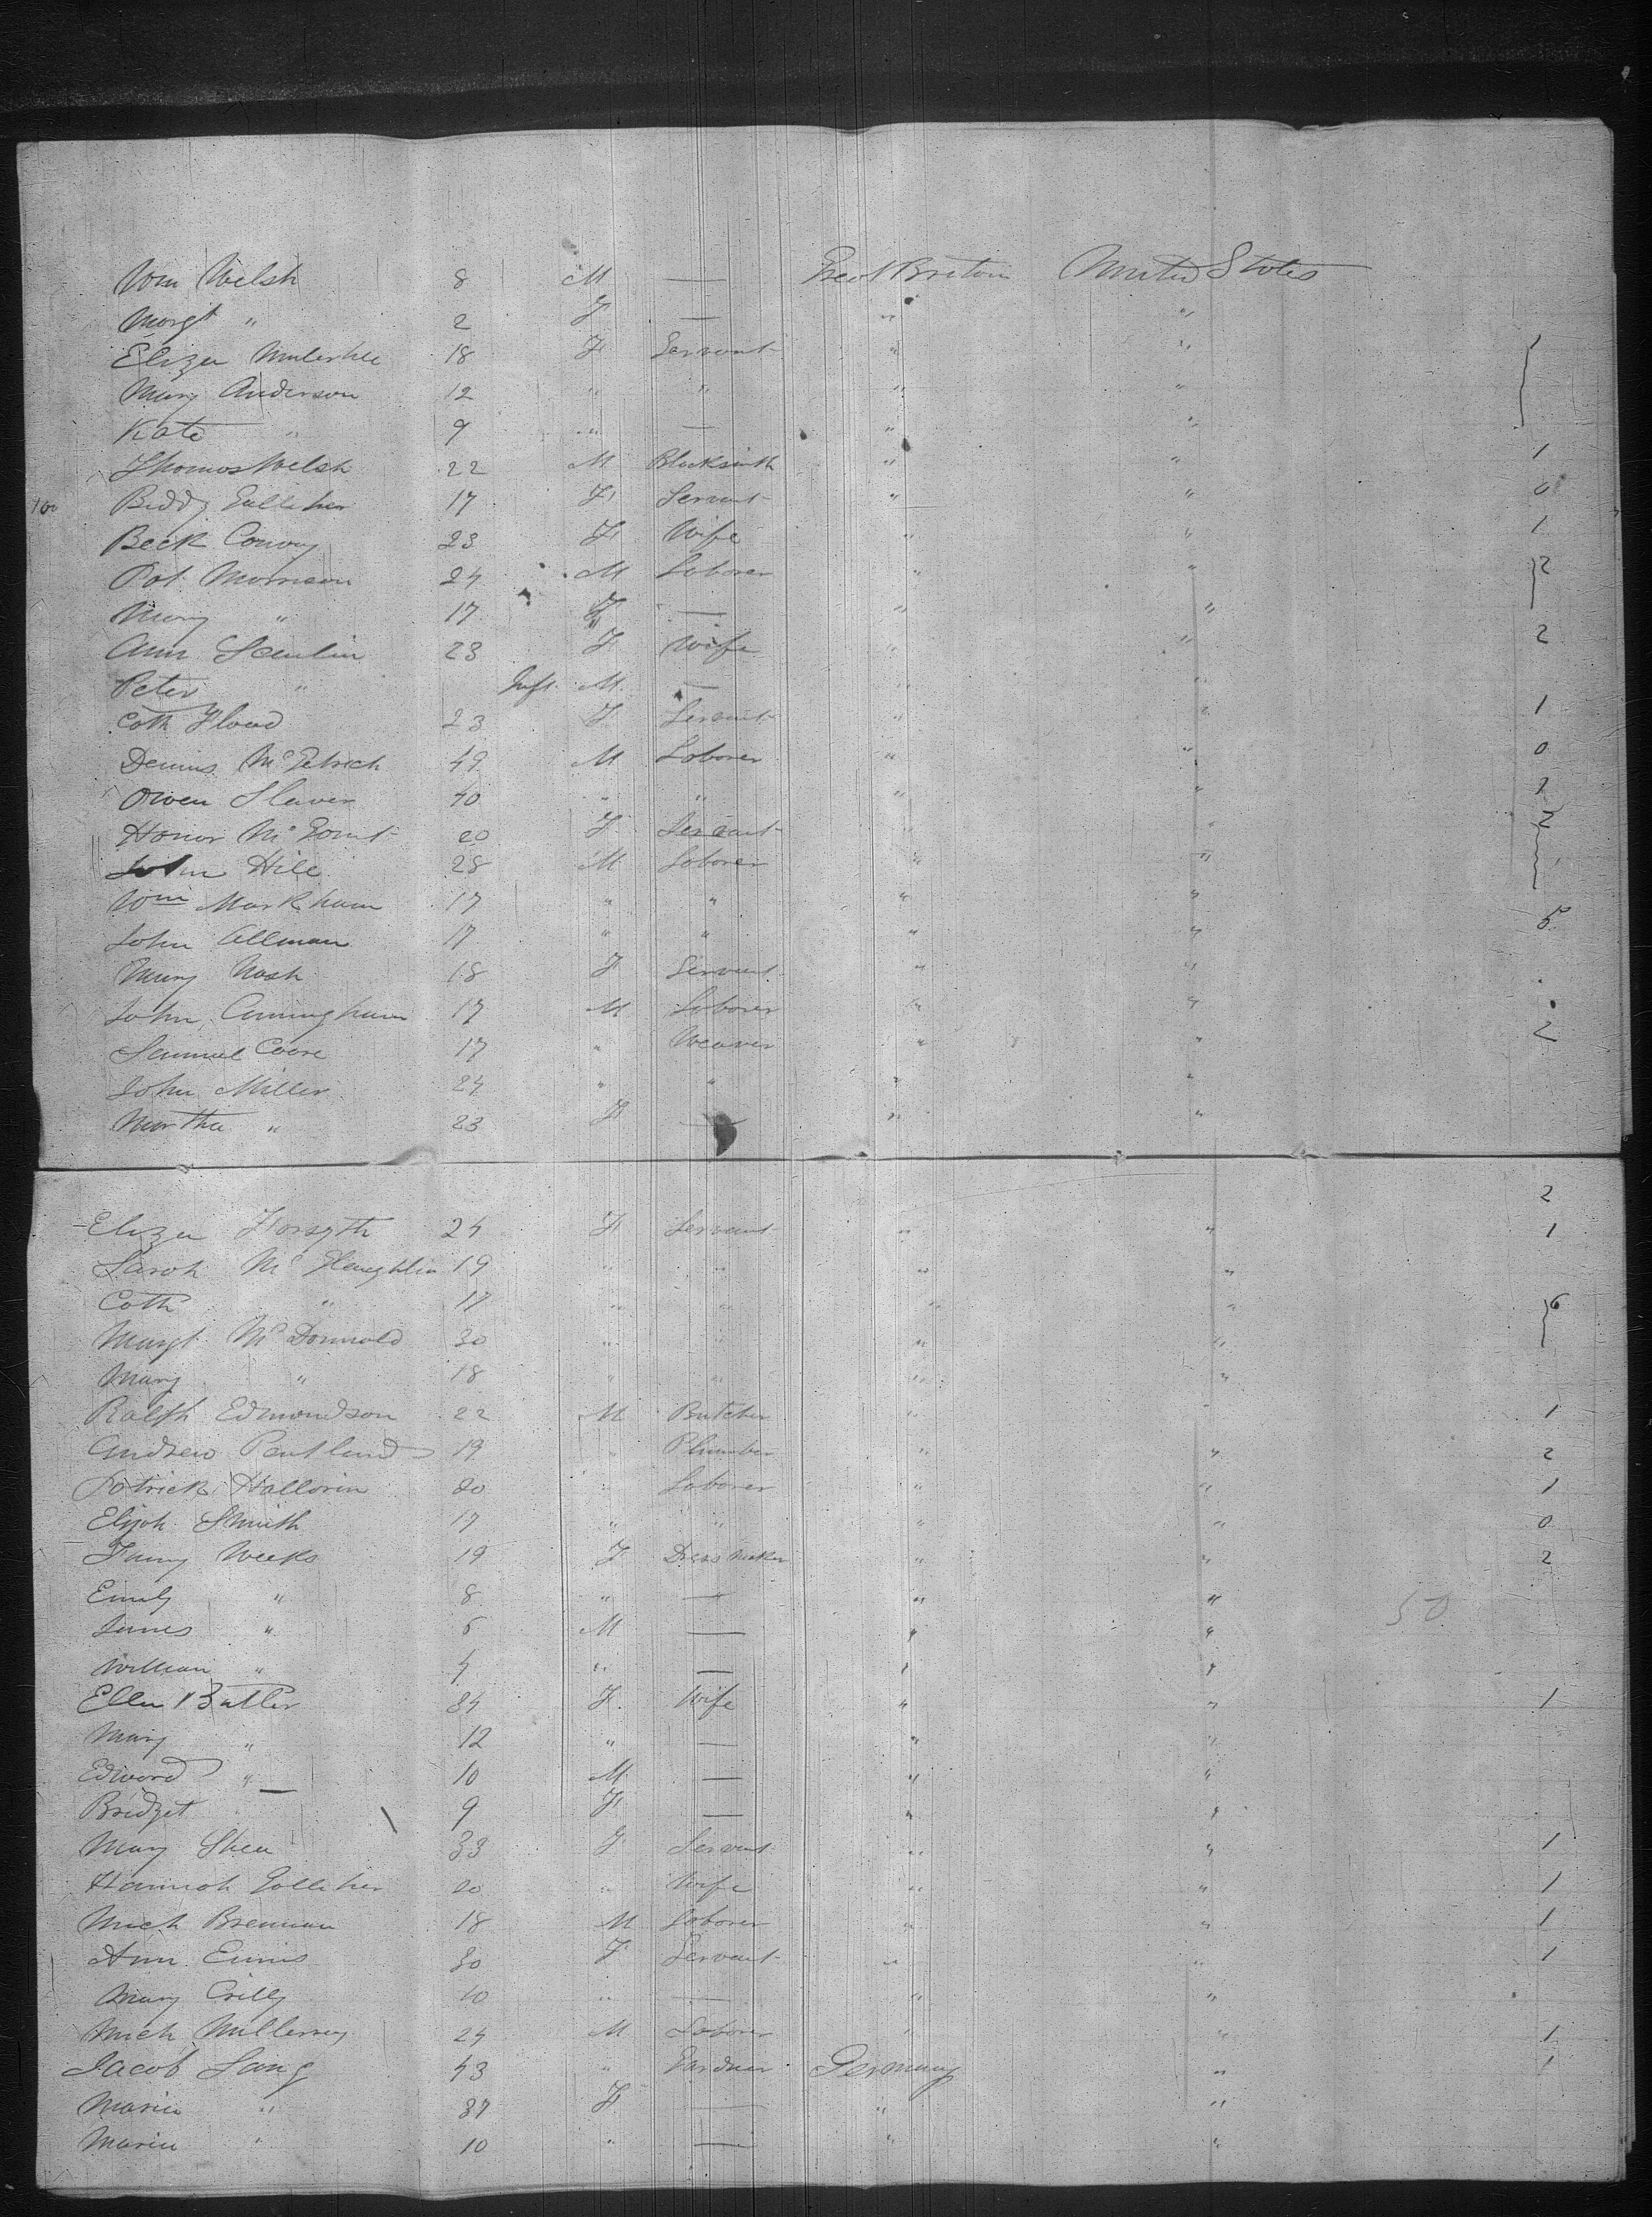 Wm Welsh 8 M — Great Britain United States
Margt " 2 F — " "
Eliza 18 F Servant " "
Mary Anderson 12 " " " "
Kate " 9 " — " "
Thomas Welsh 22 M Blacksmith " " 1
100 Biddy Galliher 17 F Servant " " 0
Beck Conway 23 F Wife " " 1
Pat Morrison 24 M Laborer " " 2
Mary " 17 F — " "
Ann Scanlin 23 F Wife " " 2
Peter " Inft M — " "
Cath Flood 23 F Servant " " 1
Dennis McGetrich 49 M Laborer " " 0
Owen Slaven 40 " " " "
Honor 20 F Servant " " 2
John Hill 28 M Laborer " "
Wm Markham 17 " " " "
John Allman 17 " " " " 5
Mary Nash 18 F Servant " "
John Cuningham 17 M Laborer " "
Samuel 17 " Weaver " " 2
John Miller 24 " " " "
Martha " 23 F — " "
2
Eliza Forsyth 24 F Servant " " 1
Sarah 19 " " " "
Cath " 17 " " " " 6
Margt McDonnald 30 " " " "
Mary " 18 " " " "
Ralph Edmondson 22 M Butcher " " 1
Andrew Pentland 19 " Plumber " " 2
Patrick Hallorin 20 " Laborer " " 1
Elijah Smith 17 " " " " 0
Fanny Weeks 19 F Dress Maker " " 2
Emily " 8 " — " "
James " 6 M — " " 50
William " 4 " — " "
Ellen Butler 34 F Wife " " 1
Mary " 12 " — " "
Edward " 10 M — " "
Bridget 9 F — " "
Mary Shea 33 F Servant " " 1
Hannah Galliher 20 " Wife " " 1
Mich Brennan 18 M Laborer " " 1
Ann Ennis 30 F Servant " " 1
Mary Crilly 10 " — " "
Mich 24 M Laborer " " 1
Jacob Lang 43 " Gardner Germany " 1
Maria " 37 F — " "
Maria " 10 " — " "